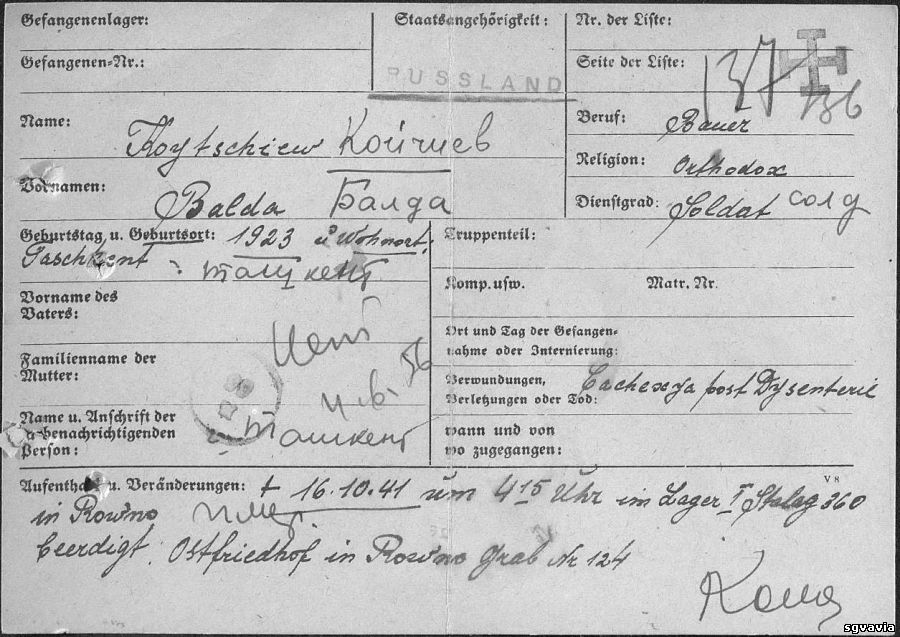 Gefangenenlager:
Staatsangehörigkeit:
Nr. der Liste:
Gefangenen-Nr.:
RUSSLAND
Seite der Liste:
137
136
Name:
Koytschiew Койчиев
Beruf: Bauer
Religion: Orthodox
Vornamen:
Balda Балда
Dienstgrad: Soldat солд
Geburtstag u. Geburtsort: 1923 u Wohnort:
Taschkent : ташкент
Truppenteil:
Komp. usw.
Matr. Nr.
Vorname des
Vaters:
Ort und Tag der Gefangen-
nahme oder Internierung:
Familienname der
Mutter:
56
Verwundungen,
Verletzungen oder Tod:
Cachexya post Dysenterie
Name u. Anschrift der
zu benachrichtigenden
Person:
г. Ташкент
wann und von
wo zugegangen:
V 8
Aufenthalt u. Veränderungen: + 16.10.41 um 4 15 Uhr im Lager I Stalag 360
in Rowno
beerdigt. Ostfriedhof in Rowno Grab Nr 124
sgvavia